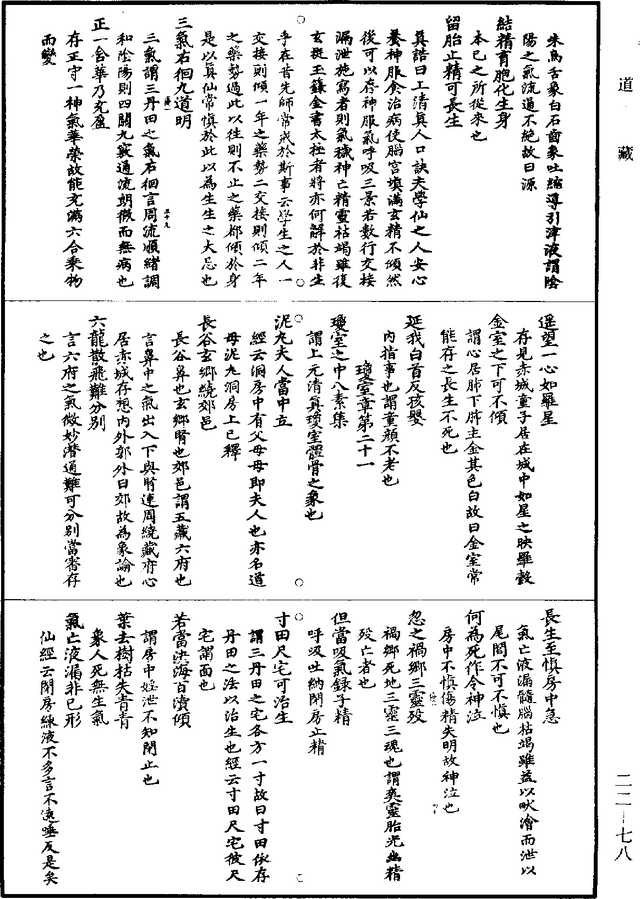 道藏
朱鳥吞象白石齒象吐縮導引津液謂陰
陽之氣流通不絶故曰源
結精育胞化生身
本己之所從來也
留胎止精可長生
真誥曰上清真人口訣夫學仙之人安心
養神服食治病使腦宮填滿玄精不傾然
後可以存神服氣呼吸三景若數行交接
漏泄施寫者則氣穢神亡精靈枯竭雖復
玄挺玉籙金書太極者將亦何解於非生
乎在昔先師常戒於斯事云學生之人一
交接則傾一年之藥勢二交接則傾二年
之藥勢過此以往則不止之藥都傾於身
是以真仙常慎於此以為生生之大忌也
三氣右徊九道明
三氣謂三丹田之氣右徊言周流順緒調
和陰陽則四關九竅通流朗徹而無病也
正一含華乃充盈
存正守一神氣華榮故能充滿六合乘物
而變
遥望一心如羅星
存見赤城童子居在城中如星之映羅縠
金室之下可不傾
謂心居肺下肺主金其色白故曰金室常
能存之長生不死也
延我白首反孩嬰
內指事也謂童顏不老也
瓊室章第二十一
瓊室之中八素集
謂上元清真瓊室體骨之象也
泥丸夫人當中立
經云洞房中有父母母即夫人也亦名道
母泥丸洞房上已釋
長谷玄鄉繞郊邑
長谷鼻也玄鄉腎也郊邑謂五藏六府也
言鼻中之氣出入下與腎連周繞藏府心
居赤城存想內外郊外曰郊故為象諭也
六龍散飛難分別
言六府之氣微妙潛通難可分別當審存
之也
長生至慎房中急
氣亡液漏髓腦枯竭雖益以畎澮而泄以
尾閭不可不慎也
何為死作令神泣
房中不慎傷精失明故神泣也
忽之禍鄉三靈歿
禍鄉死地三靈三魂也謂爽靈胎光幽精
歿亡者也
但當吸氣録子精
呼吸吐納閉房止精
寸田尺宅可治生
謂三丹田之宅各方一寸故曰寸田依存
丹田之法以治生也經云寸田尺宅彼尺
宅謂面也
若當決海百瀆傾
謂房中婬泄不知閉止也
葉去樹枯失青青
象人死無生氣
氣亡液漏非已形
仙經云閉房練液不多言不遠唾反是矣
二二—七八